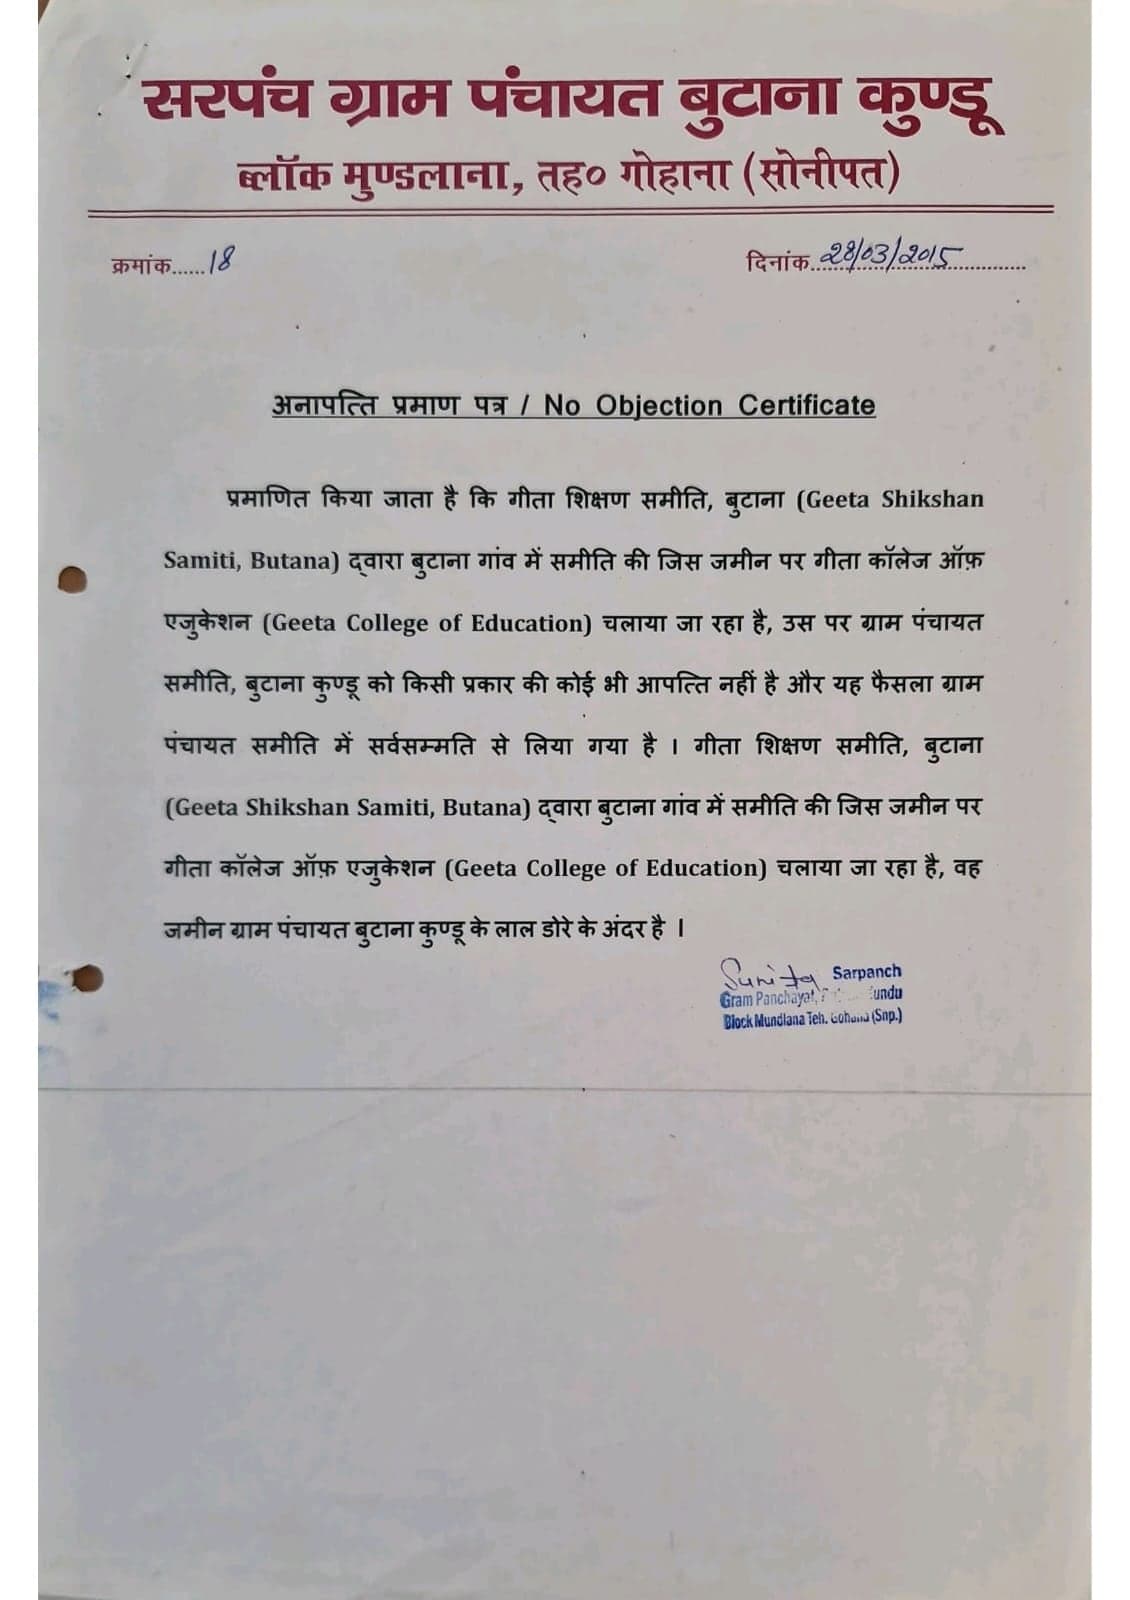 सरपंच ग्राम पंचायत बुटाना कुण्डू
ब्लॉक मुण्डलाना, तह० गोहाना (सोनीपत)
क्रमांक......18
दिनांक 28/03/2015
अनापत्ति प्रमाण पत्र / No Objection Certificate
प्रमाणित किया जाता है कि गीता शिक्षण समीति, बुटाना (Geeta Shikshan
Samiti, Butana) द्वारा बुटाना गांव में समीति की जिस जमीन पर गीता कॉलेज ऑफ़
एजुकेशन (Geeta College of Education) चलाया जा रहा है, उस पर ग्राम पंचायत
समीति, बुटाना कुण्डू को किसी प्रकार की कोई भी आपत्ति नहीं है और यह फैसला ग्राम
पंचायत समीति में सर्वसम्मति से लिया गया है । गीता शिक्षण समीति, बुटाना
(Geeta Shikshan Samiti, Butana) द्वारा बुटाना गांव में समीति की जिस जमीन पर
गीता कॉलेज ऑफ़ एजुकेशन (Geeta College of Education) चलाया जा रहा है, वह
जमीन ग्राम पंचायत बुटाना कुण्डू के लाल डोरे के अंदर है ।
Sunita Sarpanch
Gram Panchayat,
Block Mundlana Teh. Gohana (Snp.)